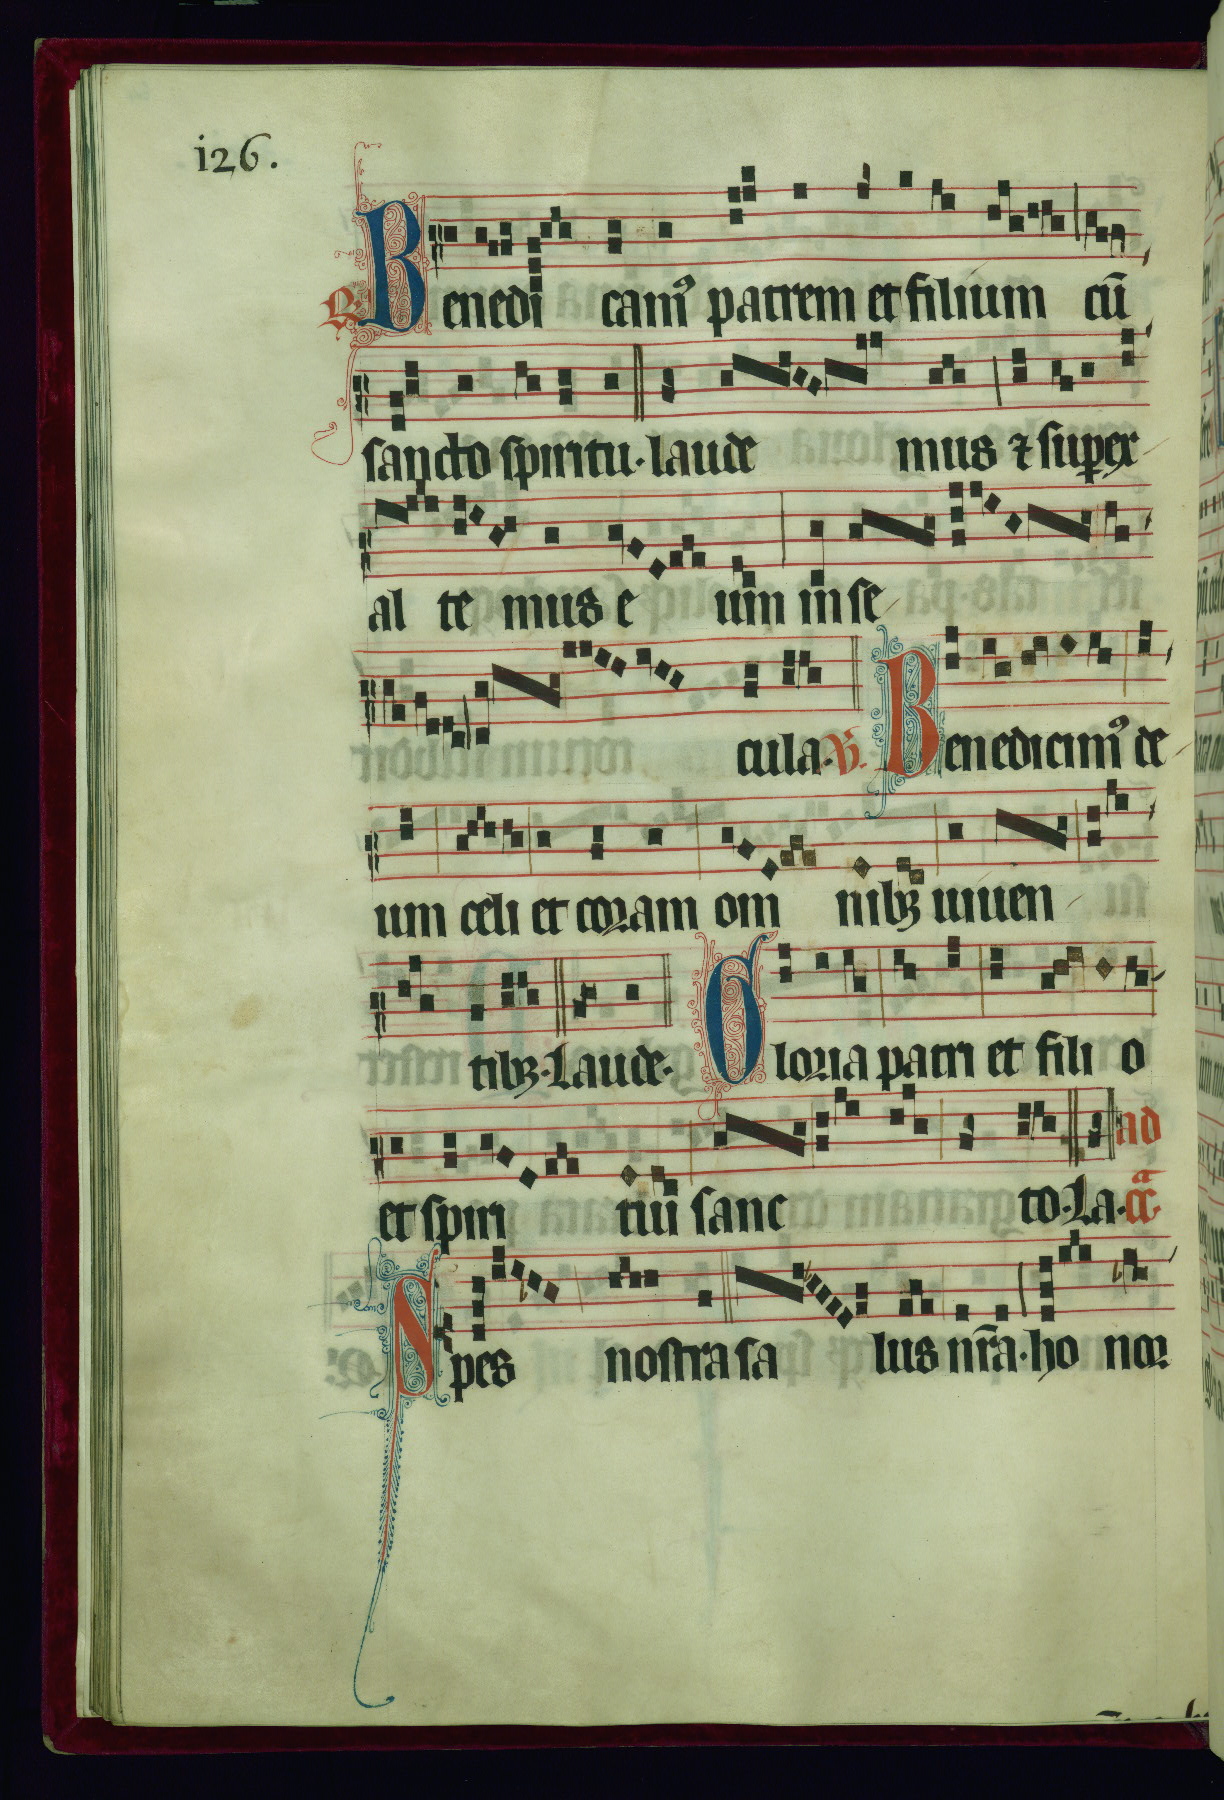 i26.
R. Benedi camꝰ patrem et filium cū
sancto spiritu. laude mus ⁊ super ex
al te mus e um in se
cula. V. Benedicimꝰ de
um celi et coram om nibꝫ uiuen
tibꝫ. Laude. Gloria patri et fili o
et spiri tui sanc to. La. ad cā
Spes nostra sa lus nr̄a. ho nor